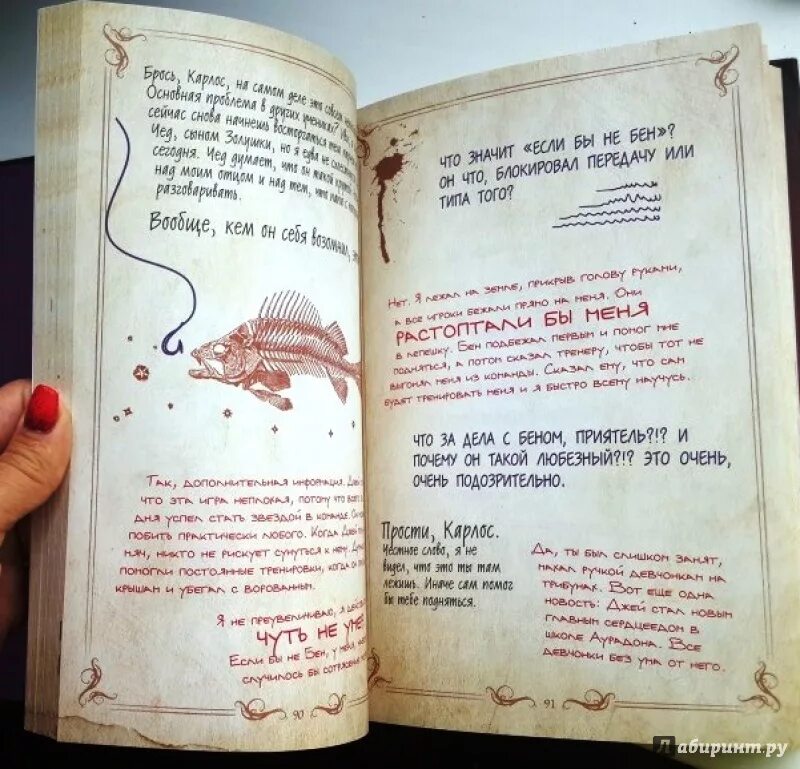 Брось, Карлос, на самом деле это совсем
Основная проблема в других учениках!
сейчас снова начнешь восторгаться
Чед, сыном Золушки, но я едва не
сегодня. Чед думает, что он такой крутой
над моим отцом и над тем, что папа с
разговаривать.
Вообще, кем он себя возомнил,
Так, дополнительная информация.
что эта игра неплохая, потому что
дня успел стать звездой в команде.
побить практически любого. Когда Джей
мяч, никто не рискует сунуться к нему.
помогли постоянные тренировки, когда он
крышам и убегал с ворованным.
Я не преувеличиваю, я
ЧУТЬ НЕ
Если бы не Бен, у меня
случилось бы сотрясение
90
ЧТО ЗНАЧИТ «ЕСЛИ БЫ НЕ БЕН»?
ОН ЧТО, БЛОКИРОВАЛ ПЕРЕДАЧУ ИЛИ
ТИПА ТОГО?
Нет. Я лежал на земле, прикрыв голову руками,
а все игроки бежали прямо на меня. Они
РАСТОПТАЛИ БЫ МЕНЯ
в лепешку. Бен подбежал первым и помог мне
подняться, а потом сказал тренеру, чтобы тот не
выгонял меня из команды. Сказал ему, что сам
будет тренировать меня и я быстро всему научусь.
ЧТО ЗА ДЕЛА С БЕНОМ, ПРИЯТЕЛЬ?!? И
ПОЧЕМУ ОН ТАКОЙ ЛЮБЕЗНЫЙ?!? ЭТО ОЧЕНЬ,
ОЧЕНЬ ПОДОЗРИТЕЛЬНО.
Прости, Карлос.
Честное слово, я не
видел, что это ты там
лежишь. Иначе сам помог
бы тебе подняться.
Да, ты был слишком занят,
махал ручкой девчонкам на
трибунах. Вот еще одна
новость: Джей стал новым
главным сердцеедом в
школе Аурадона. Все
девчонки без ума от него.
91
Лабиринт.ру